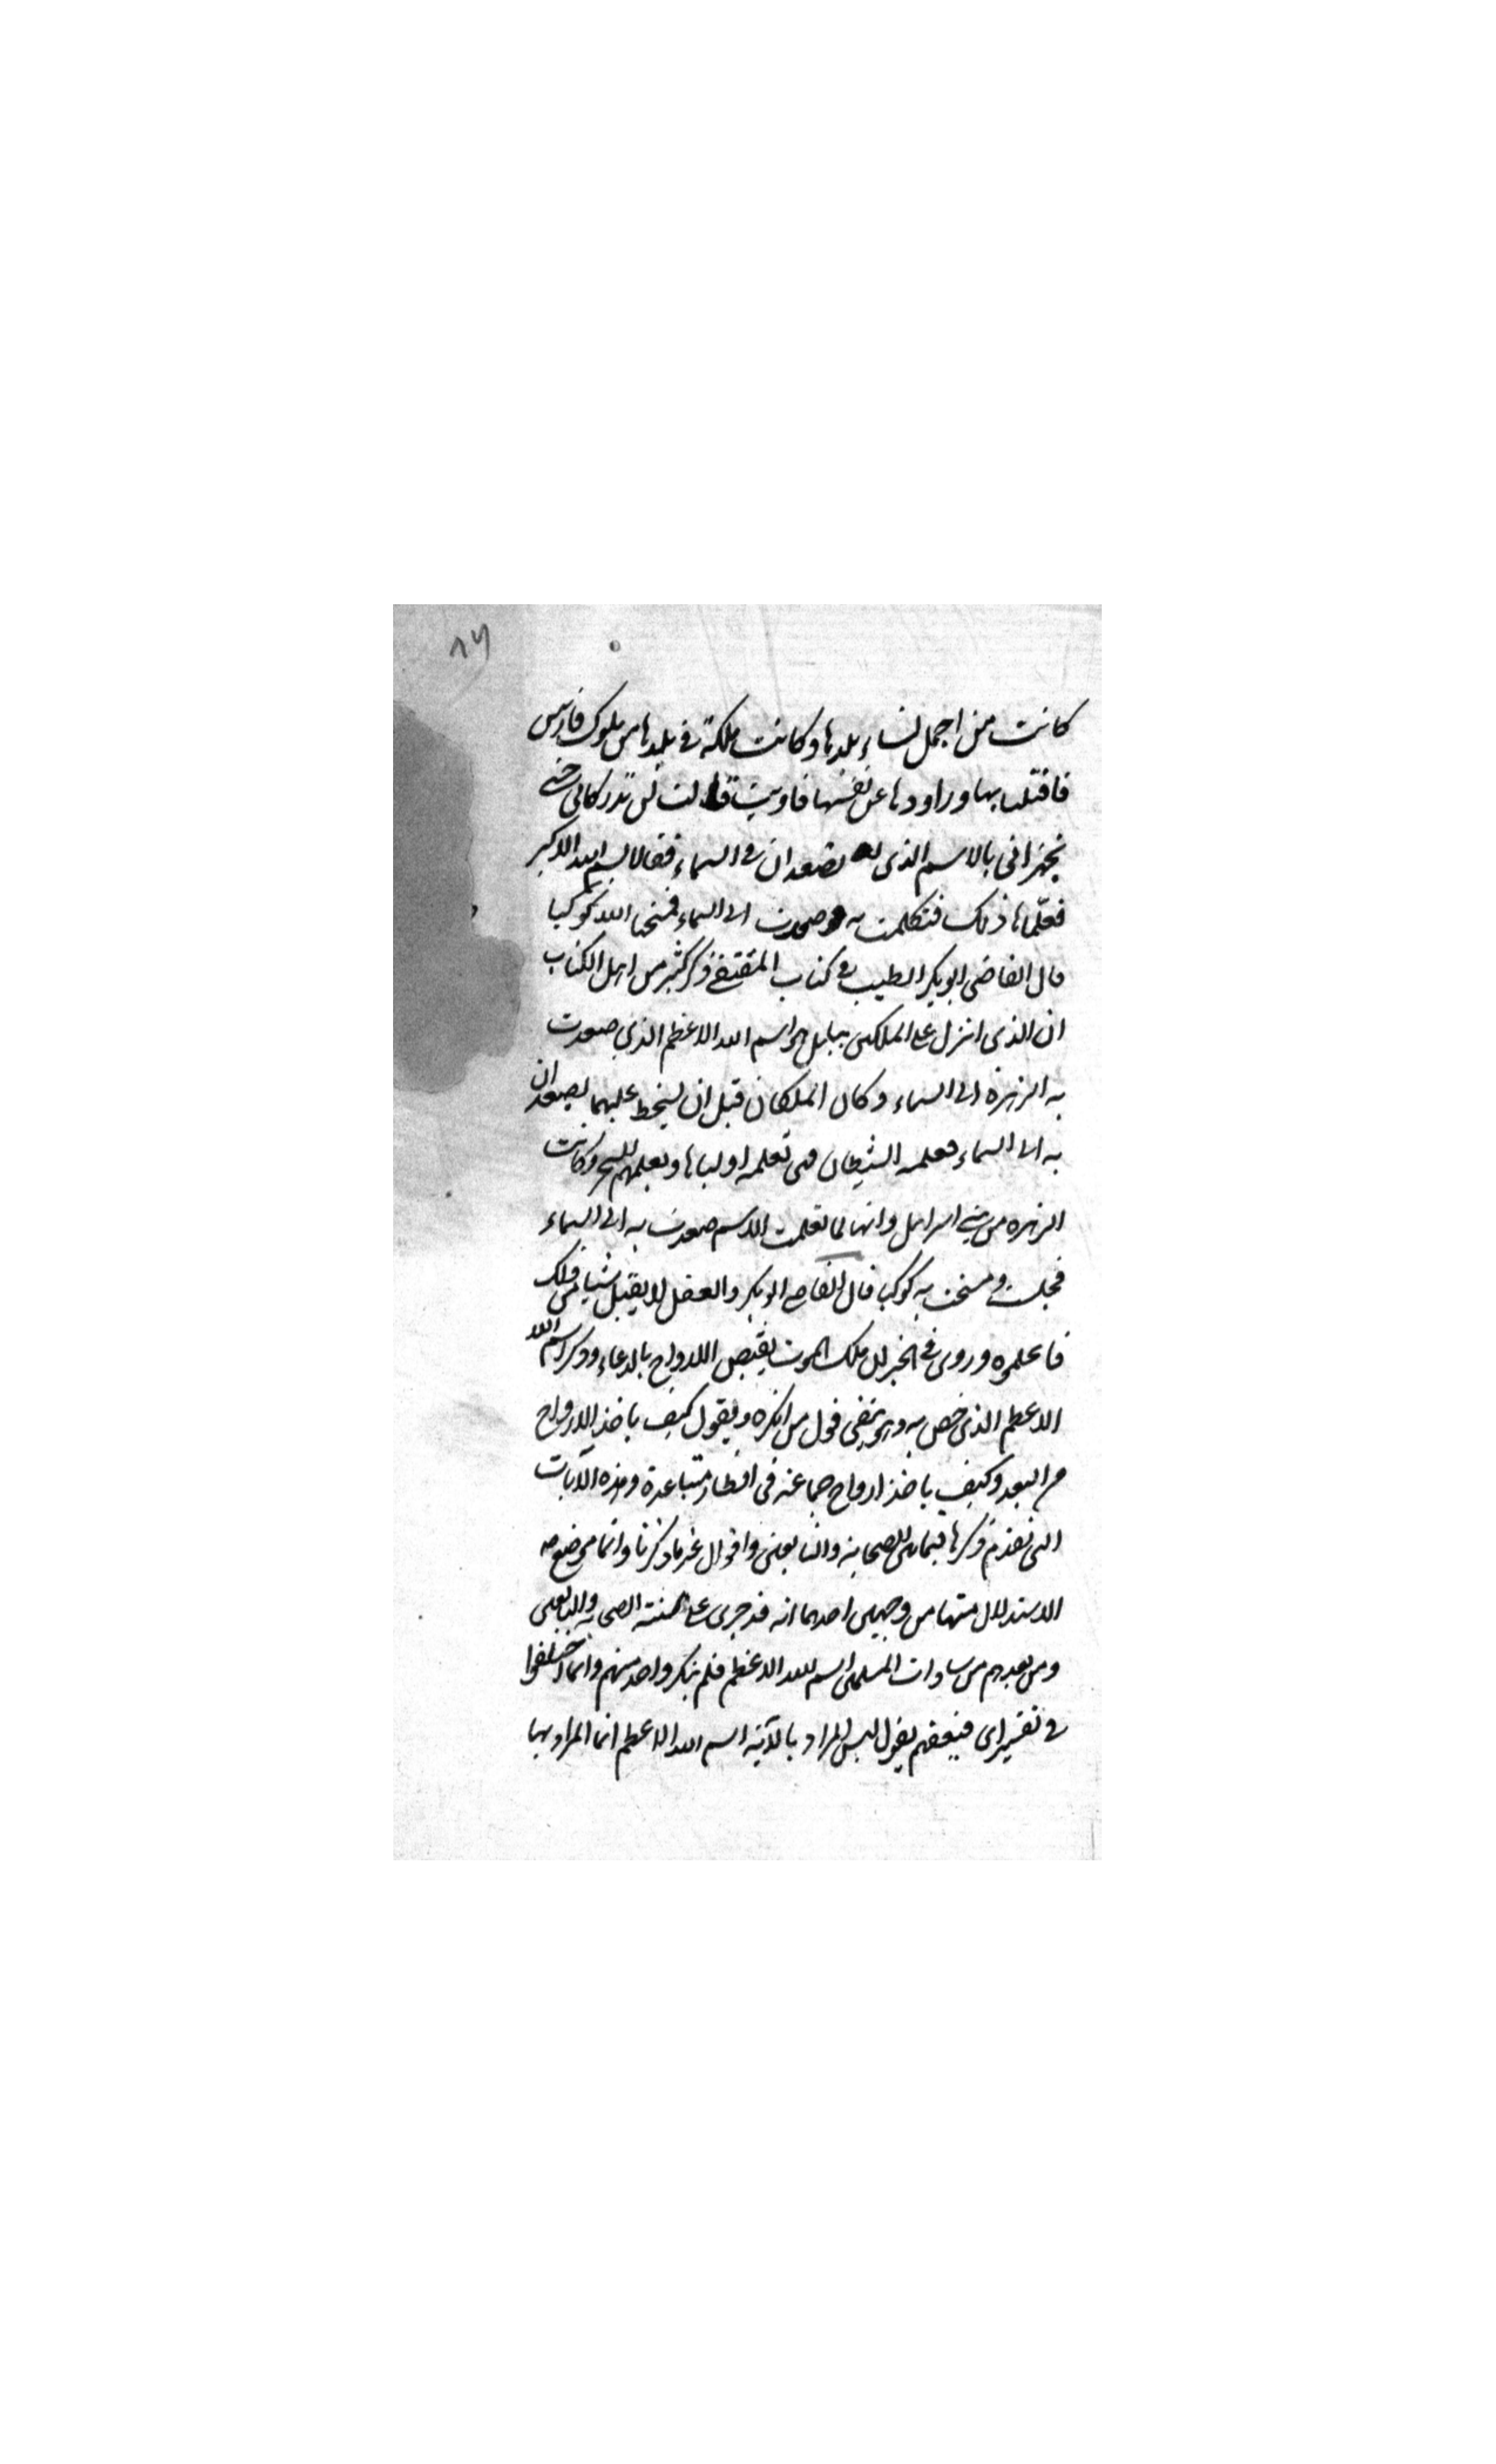 ١٧
كانت من اجمل نساء بلدها وكانت ملكة في بلدها من ملوك فارس
فافتتنا بها وراوداها عن نفسها فاوبيت قالت لن تدركاني حتى
تخبراني بالاسم الذي به تصعدان في السماء فقالا بسم الله الاكبر
فعلماها ذلك فتكلمت به وصعدت الى السماء فمسخها الله كوكبا
قال القاضي ابو بكر الطيب في كتاب المقتفى ذكر كثير من اهل الكتاب
ان الذي انزل على الملكين ببابل هو اسم الله الاعظم الذي صعدت
به الزهرة الى السماء وكان الملكان قبل ان يسخط عليهما يصعدان
به الى السماء فعلمه الشيطان فهي تعلمه اولياها وتعلمهم السحر وكانت
الزهره من بني اسرائيل وانها لما تعلمت الاسم صعدت به الى السماء
فجلت ومسخت به كوكبا قال القاضي ابو بكر والعقل لا يقبل شيا من ذلك
فاعلموه وروى في الخبر ان ملك الموت يقبض الارواح بالدعاء وذكر اسم الله
الاعظم الذي خص به وهو ينفي قول من انكره ويقول كيف ياخذ الارواح
من البعد وكيف ياخذ ارواح جماعة في اقطار متباعدة وهذه الايات
التي تقدم ذكرها فيها الصحابة والتابعين واقوال غير ما ذكرنا وانما موضع
الاستدلال منها من وجهين احدهما انه قد جرى على السنة الصحابة والتابعين
ومن بعدهم من سادات المسلمين اسم الله الاعظم فلم ينكر واحد منهم وانما اختلفوا
في تفسير اى فبعضهم يقول ليس المراد بالآية اسم الله الاعظم انما المراد بها